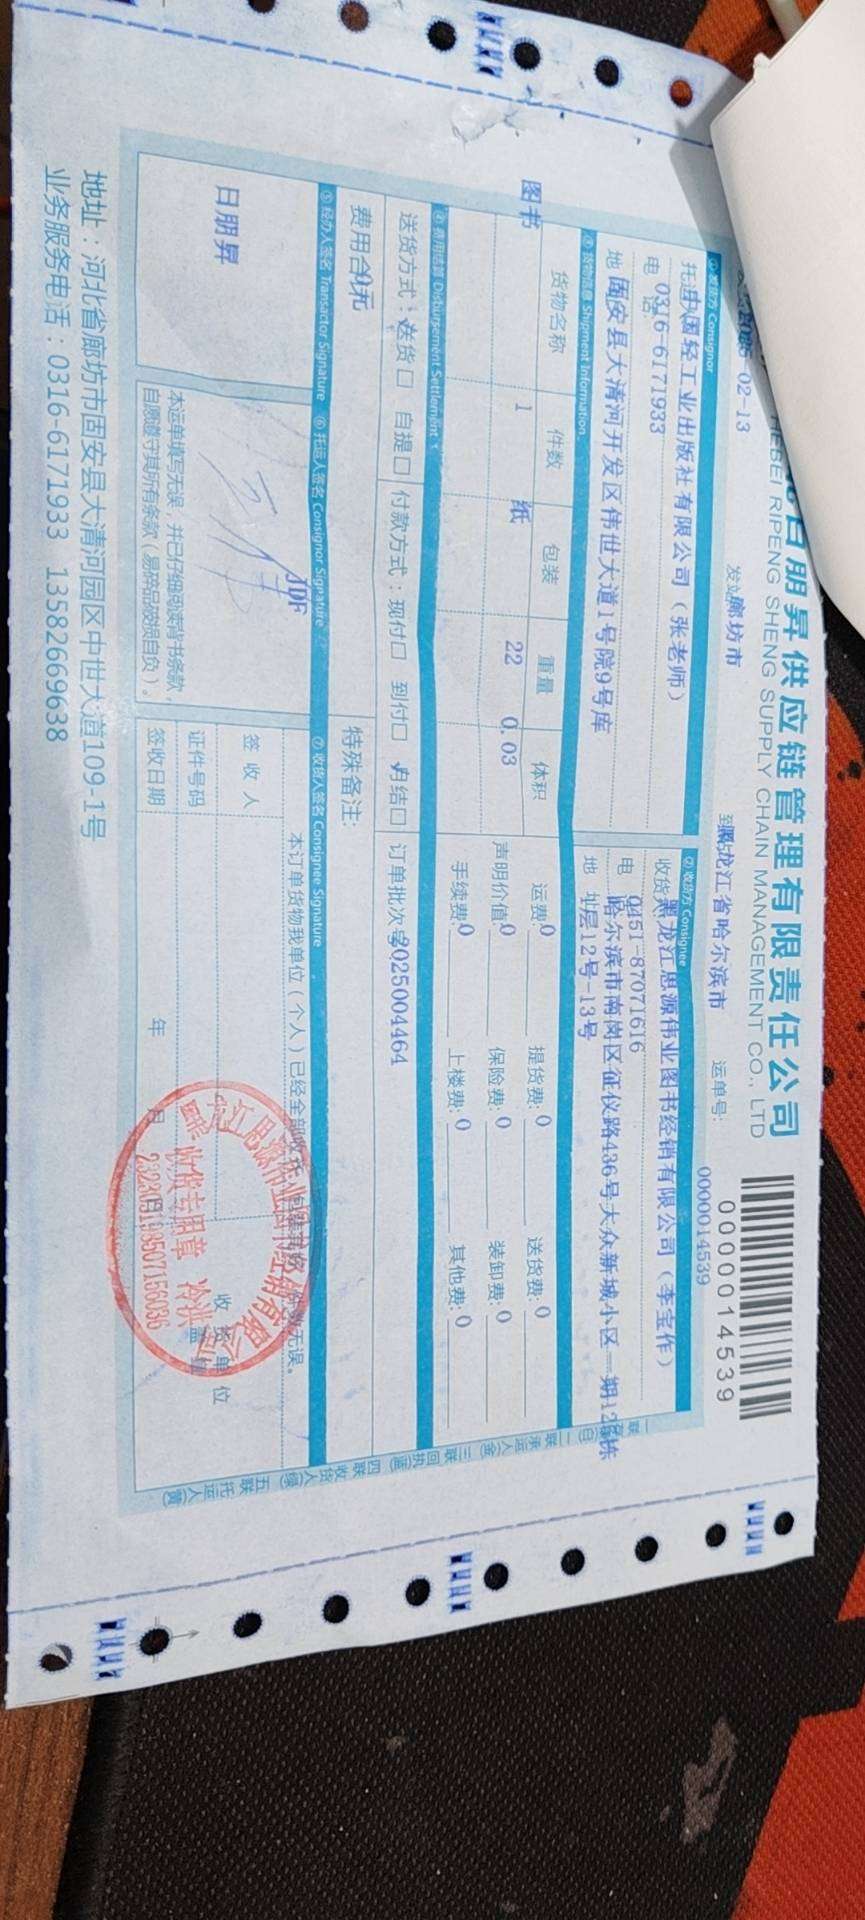 日朋昇供应链管理有限责任公司
HEBEI RIPENG SHENG SUPPLY CHAIN MANAGEMENT CO., LTD
0000014539
-02-13
发站廊坊市
到黑龙江省哈尔滨市
运单号:
0000014539
① 发货方 Consignor
② 收货方 Consignee
中国轻工业出版社有限公司（张老师）
收货黑龙江思源伟业图书经销有限公司（李宝作）
电话 0316-6171933
电 0451-87071616
地 固安县大清河开发区伟世大道1号院9号库
地 址 哈尔滨市南岗区征仪路436号大众新城小区一期12栋
层12号-13号
③ 货物信息 Shipment Information
货物名称 件数 包装 重量 体积
图书 1 纸 22 0.03
运费:0 提货费:0 送货费:0
声明价值:0 保险费:0 装卸费:0
手续费:0 上楼费:0 其他费:0
④ 费用结算 Disbursement Settlement
送货方式：送货☐ 自提☐ 付款方式：现付☐ 到付☐ 月结☐ 订单批次号2025004464
费用合0元
特殊备注:
⑤ 经办人签名 Transactor Signature ⑥ 托运人签名 Consignor Signature ⑦ 收货人签名 Consignee Signature
日朋昇
JDF
本运单填写无误，并已仔细阅读背书条款，
自愿遵守其所有条款（易碎品破损自负）。
本订单货物我单位（个人）已经全部收讫，包装完好，件数无误。
签收人
证件号码
签收日期 年 月 日
收货单位
盖章
黑龙江思源伟业图书经销有限公司
收货专用章
一联
二联承运人(金)
三联回执(蓝)
四联收货人(绿)
五联托运人(黄)
地址：河北省廊坊市固安县大清河园区中世大道109-1号
业务服务电话：0316-6171933 13582669638